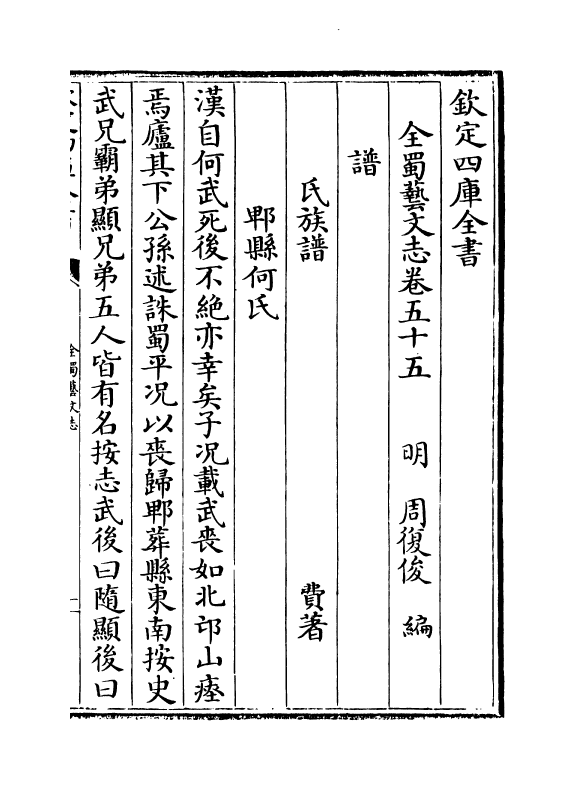 欽定四庫全書
全蜀藝文志卷五十五 明 周復俊 編
譜
氏族譜 費著
郫縣何氏
漢自何武死後不絕亦幸矣子況載武喪如北邙山瘞
焉廬其下公孫述誅蜀平況以喪歸郫葬縣東南按史
武兄霸弟顯兄弟五人皆有名按志武後曰隨顯後曰
全蜀藝文志